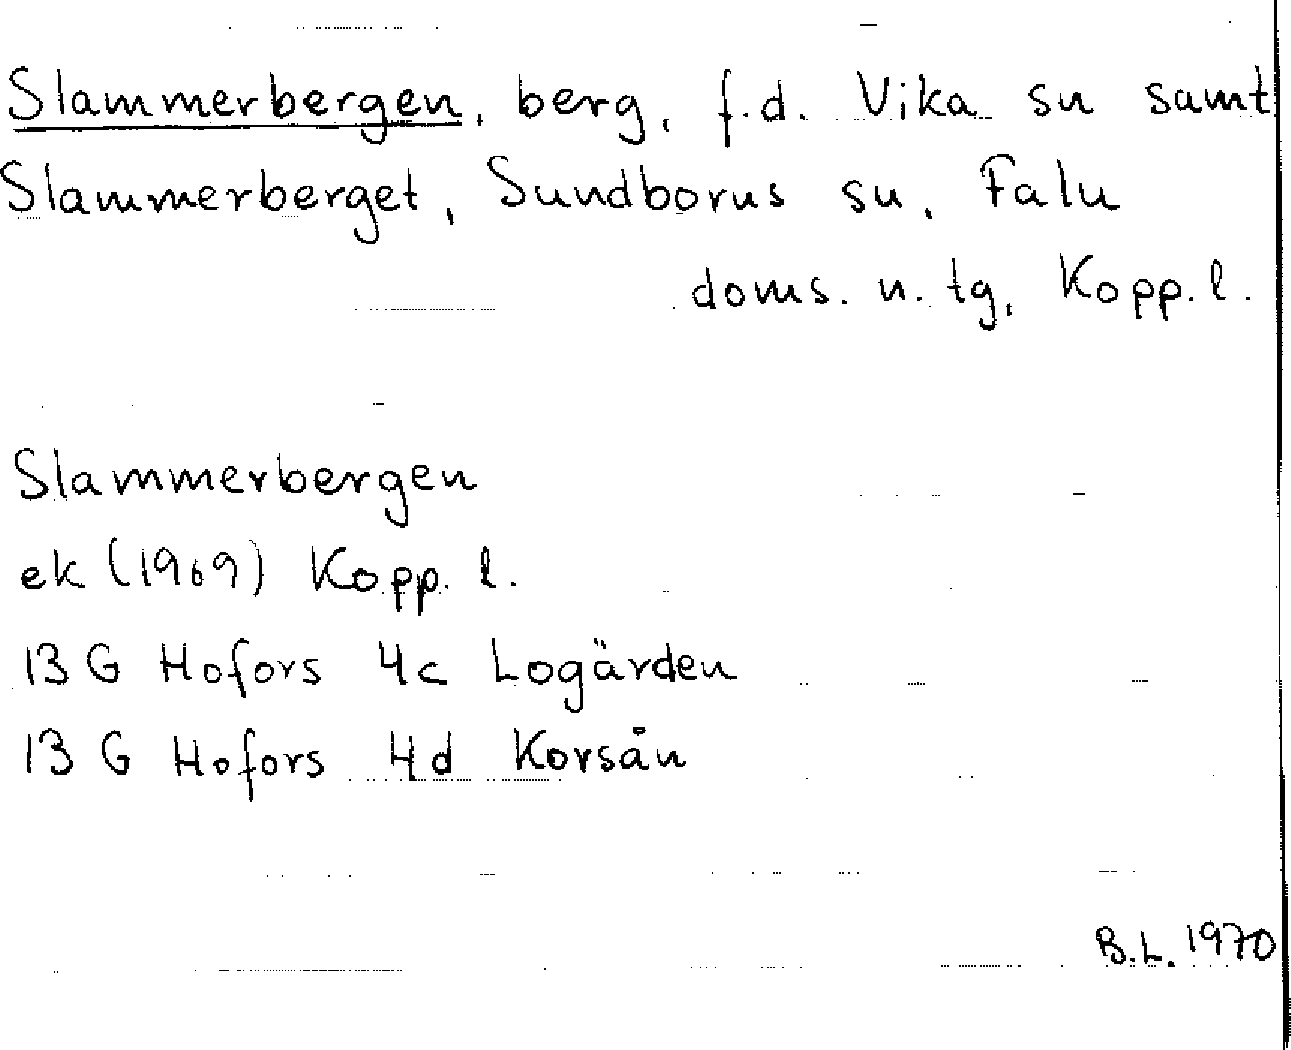 Slammerbergen, berg, f.d. Vika sn samt
Slammerberget, Sundborns sn, Falu
doms. n. tg, Kopp. l.
Slammerbergen
ek (1969) Kopp. l.
13 G Hofors 4c Logärden
13 G Hofors 4d Korsån
B.L. 1970